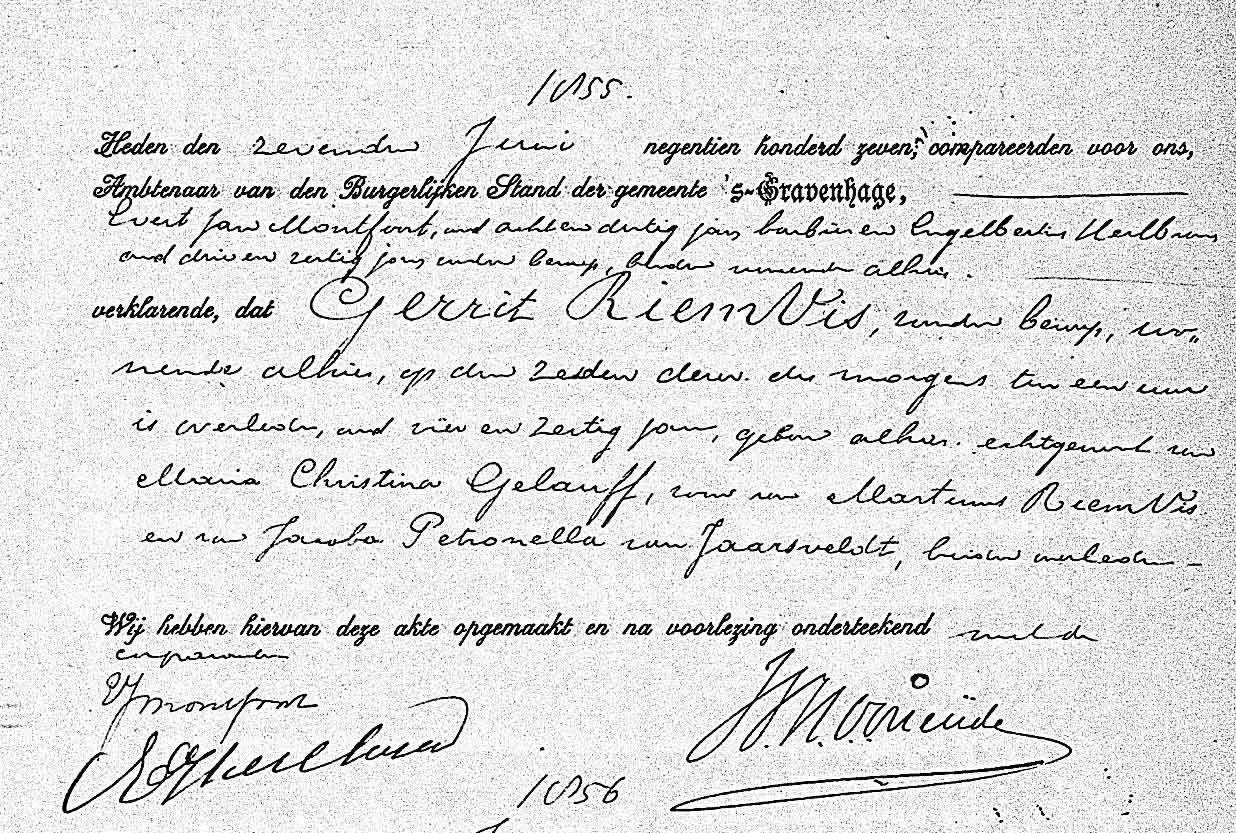 1055.
Heden den zevenden Juni negentien honderd zeven, compareerden voor ons,
Ambtenaar van den Burgerlijken Stand der gemeente 's-Gravenhage,
Evert Jan Montfoort, oud achtendertig jaar, barbier en Engelbertus
oud drie en zestig jaar, zonder beroep, beiden wonende alhier.
verklarende, dat Gerrit Riem Vis, zonder beroep, wo„
nende alhier, op den zesden dezer des morgens ten een uur
is overleden, oud vier en zestig jaar, geboren alhier. echtgenoot van
Maria Christina Gelauff, zoon van Martinus Riem Vis
en van Jacoba Petronella van Jaarsveldt, beiden overleden –
Wij hebben hiervan deze akte opgemaakt en na voorlezing onderteekend met de
comparanten
EJ Montfoort
1056